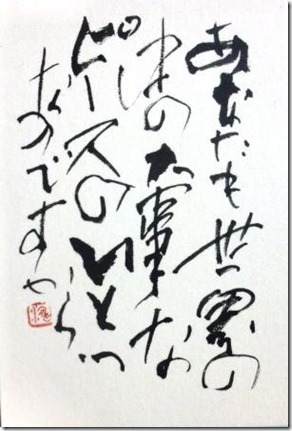 あなたも世界の
中の大事な
ピースのひとつ
なのですよ